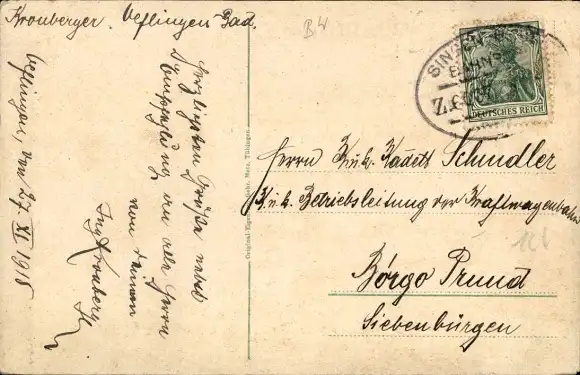 Kronberger. Oeflingen Bad.
B W
Oeflingen, den 27. XI. 1915
Herzlichsten Grüße nebst
Empfehlung an alle Herrn
von deinem
Kronberger
Original-Eigentum Gebr. Metz, Tübingen.
SINGEN
BAHNPOST
Z.
DEUTSCHES REICH
Herrn K.u.k. Kadett Schindler
K.u.k. Betriebsleitung der Kraftwagenbahn
Borgo Prund
Siebenbürgen